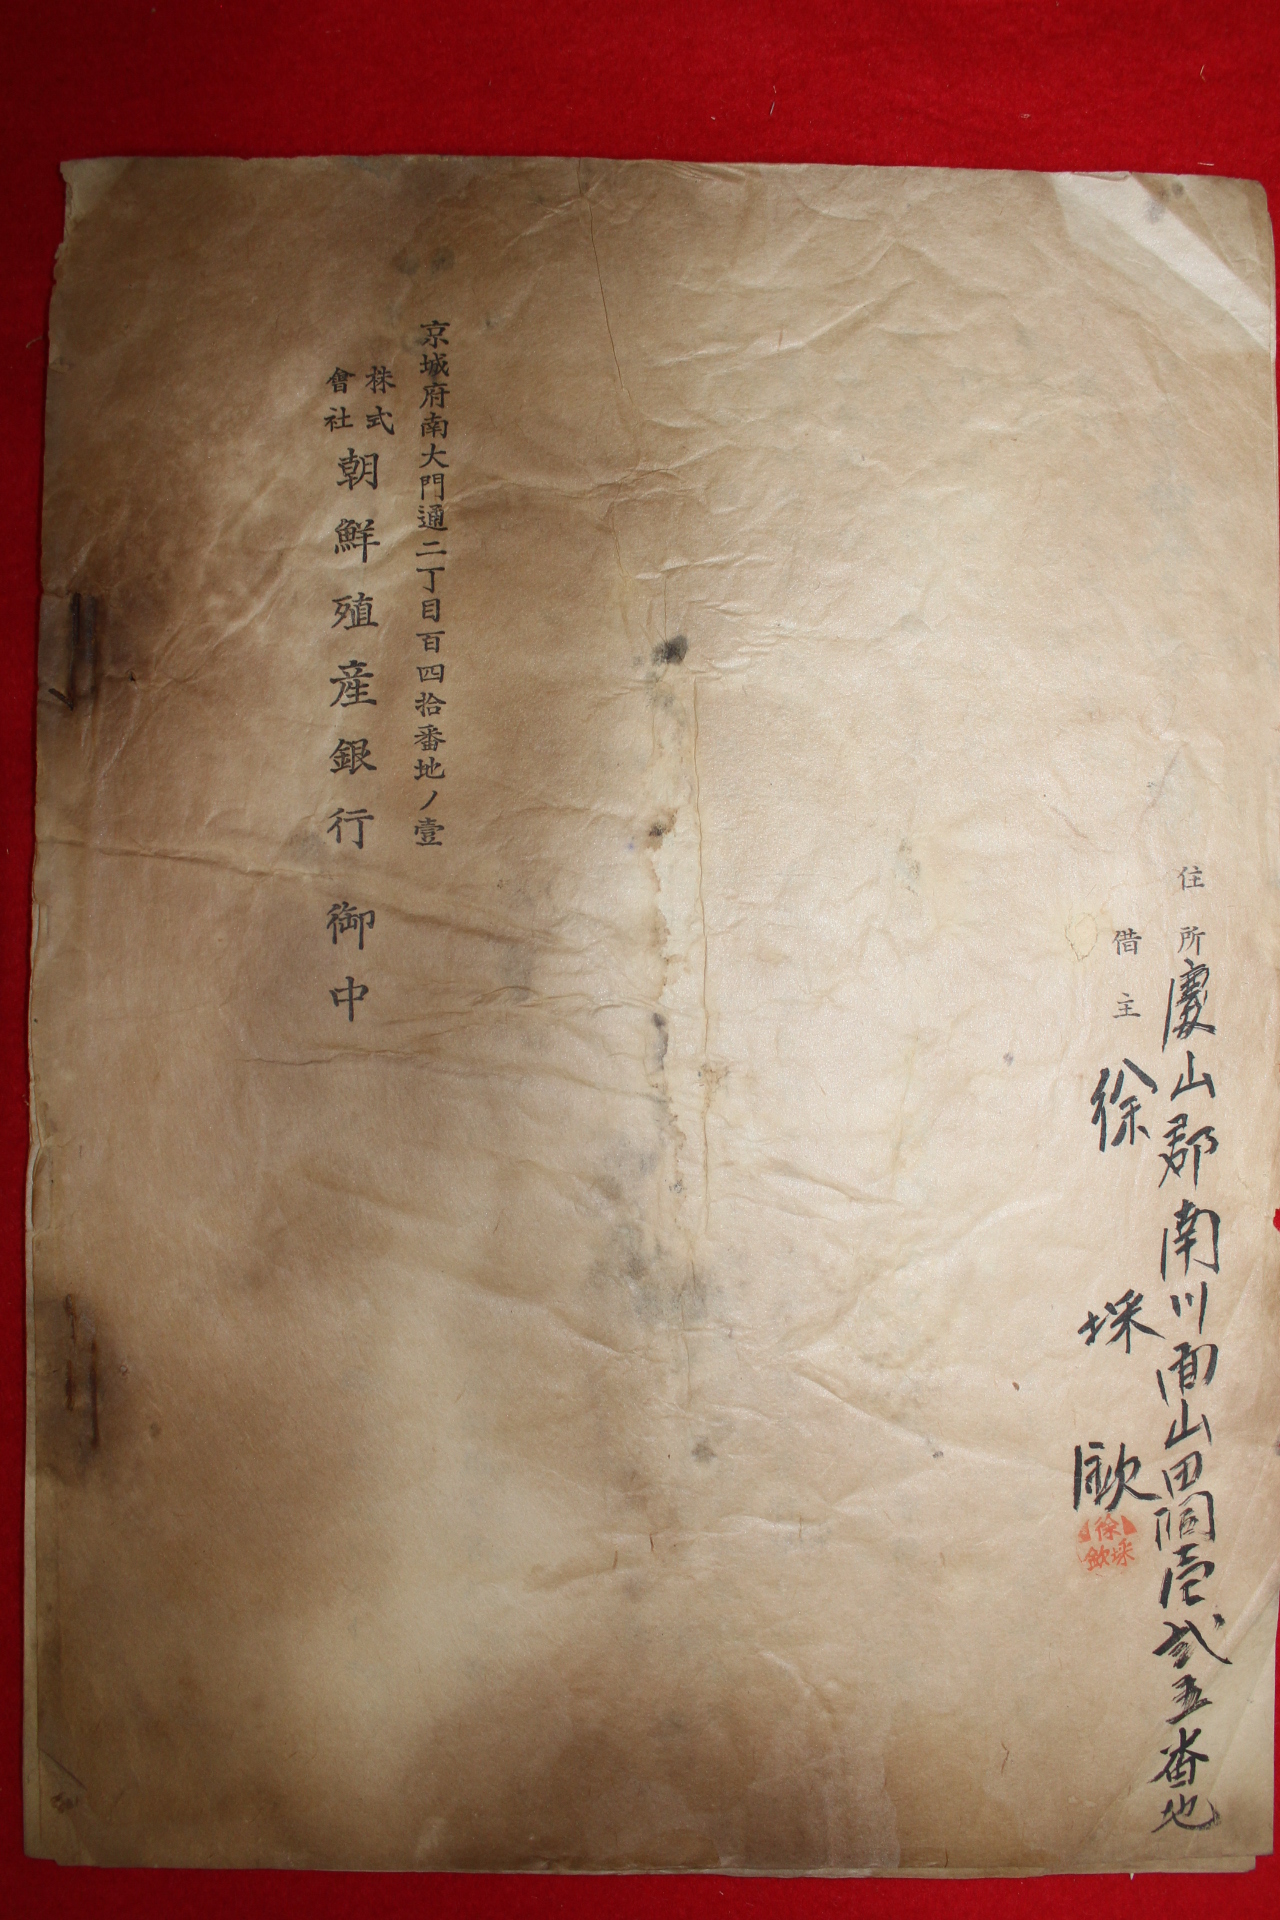 住所慶山郡南川面山田洞壱弐五番地
借主 徐埰欽
徐埰
欽
京城府南大門通二丁目百四拾番地ノ壹
株式
會社
朝鮮殖産銀行御中